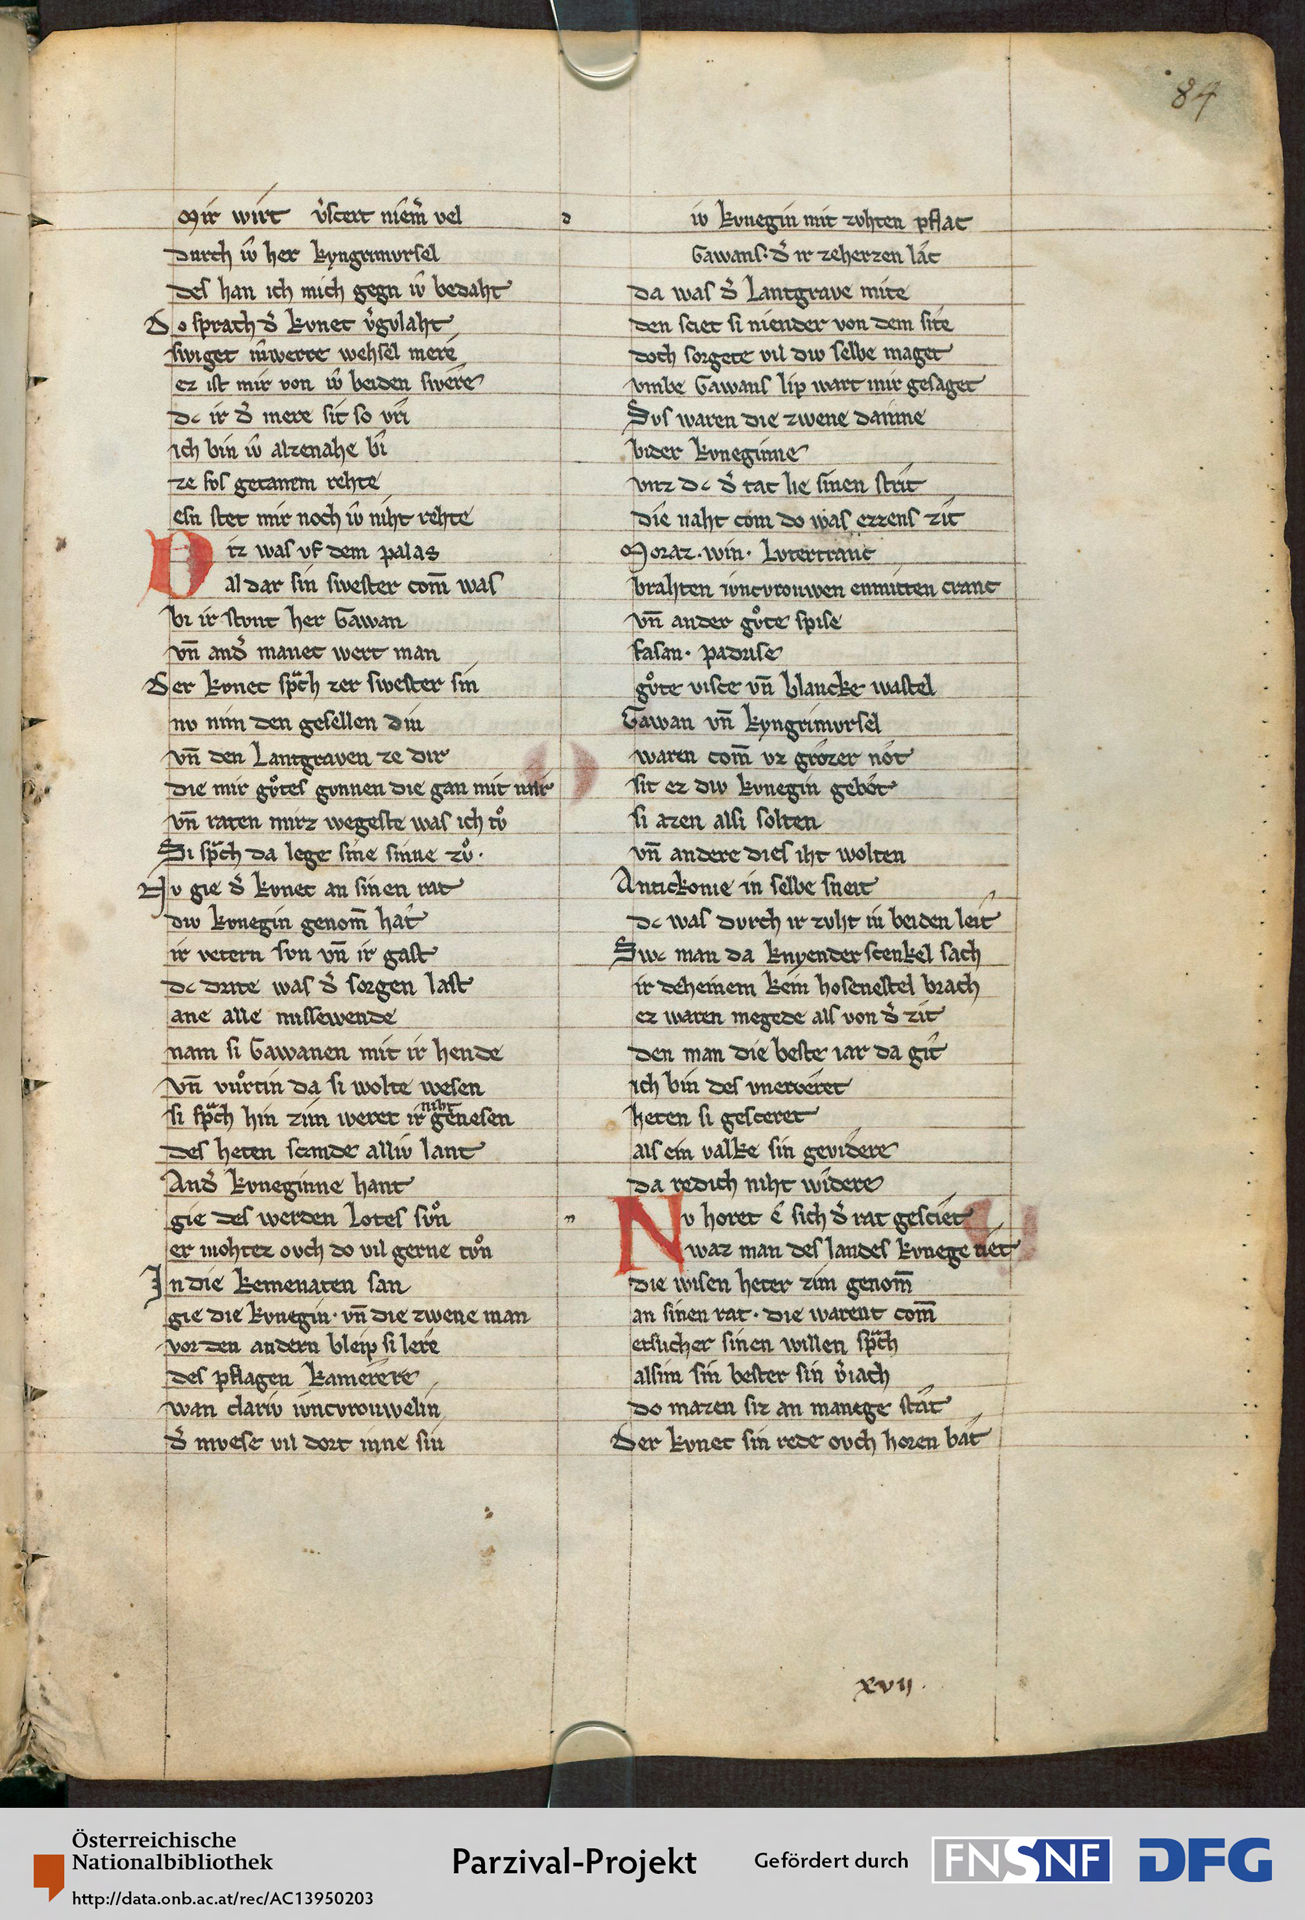 84
Mir wirt v̾scert niem̄ vel
durch iw̄ her kyngrimursel
des han ich mich gegn iw̄ bedaht
Do sprach d̾ kvnec v̾gvlaht
swiget iw̄werre wehsel mere
ez ist mir von iw̄ beiden swere
dc ir d̾ mere sit so vri
ich bin iw̄ alzenahe bi
ze sos getanem rehte
esn stet mir noch iw̄ niht rehte
Ditz was vf dem palas
al dar sin swester com̄ was
bi ir stvnt her Gawan
vn̄ and̾ manec wert man
Der kvnec sp̾ch zer swester sin
nv nim den gesellen din
vn̄ den Lantgraven ze dir
die mir gůtes gvnnen die gan mit mir
vn̄ raten mirz wegeste was ich tů
Si sp̾ch da lege sine sinne zů.
Nv gie d̾ kvnec an sinen rat
diw kvnegin genom̄ hat
ir vetern svn vn̄ ir gast
dc drite was d̾ sorgen last
ane alle missewende
nam si Gawanen mit ir hende
vn̄ vůrtin da si wolte wesen
si sp̾ch hin zim weret ir niht genesen
des heten scande alliv lant
And̾ kvneginne hant
gie des werden Lotes sůn
er mohtez ovch do vil gerne tůn
In die kemenaten san
gie die kvnegin. vn̄ die zwene man
vor den andern bleip si lere
des pflagen kamerere
wan clariv ivncvrouwelin
d̾ mvese vil dort inne sin
d
iw kvnegin mit zvhten pflac
Gawans. d̾ ir zeherzen lac
da was d̾ Lantgrave mite
den sciet si niender von dem site
doch sorgete vil diw selbe maget
vmbe Gawans lip wart mir gesaget
Svs waren die zwene dainne
bider kvneginne
vntz dc d̾ tac lie sinen strit
die naht com do was ezzens zit
Moraz. win. Lvtertranc
brahten ivncvrouwen enmitten cranc
vn̄ ander gůte spise
fasan. padrise
gůte visce vn̄ blancke wastel
Gawan vn̄ kyngrimvrsel
waren com̄ vz grozer not
sit ez diw kvnegin gebot
si azen alsi solten
vn̄ andere dies iht wolten
Antickonie in selbe sneit
dc was dvrch ir zvht in beiden leit
Swc man da knyender scenkel sach
ir deheinem kein hosenestel brach
ez waren megede als von d̾ zit
den man die beste iar da git
ich bin des vnerveret
heten si gesceret
als ein valke sin gevidere
da redich niht widere
n
Nv horet e sich d̾ rat gesciet
waz man des landes kvnege riet
die wisen heter zim genom̄
an sinen rat. die warent com̄
etslicher sinen willen sp̾ch
alsim sin bester sin v̾iach
do mazen siz an manege strit
Der kvnec sin rede ovch horen bat
xvij.
Österreichische
Nationalbibliothek
http://data.onb.ac.at/rec/AC13950203
Parzival-Projekt
Gefördert durch
FNSNF
DFG